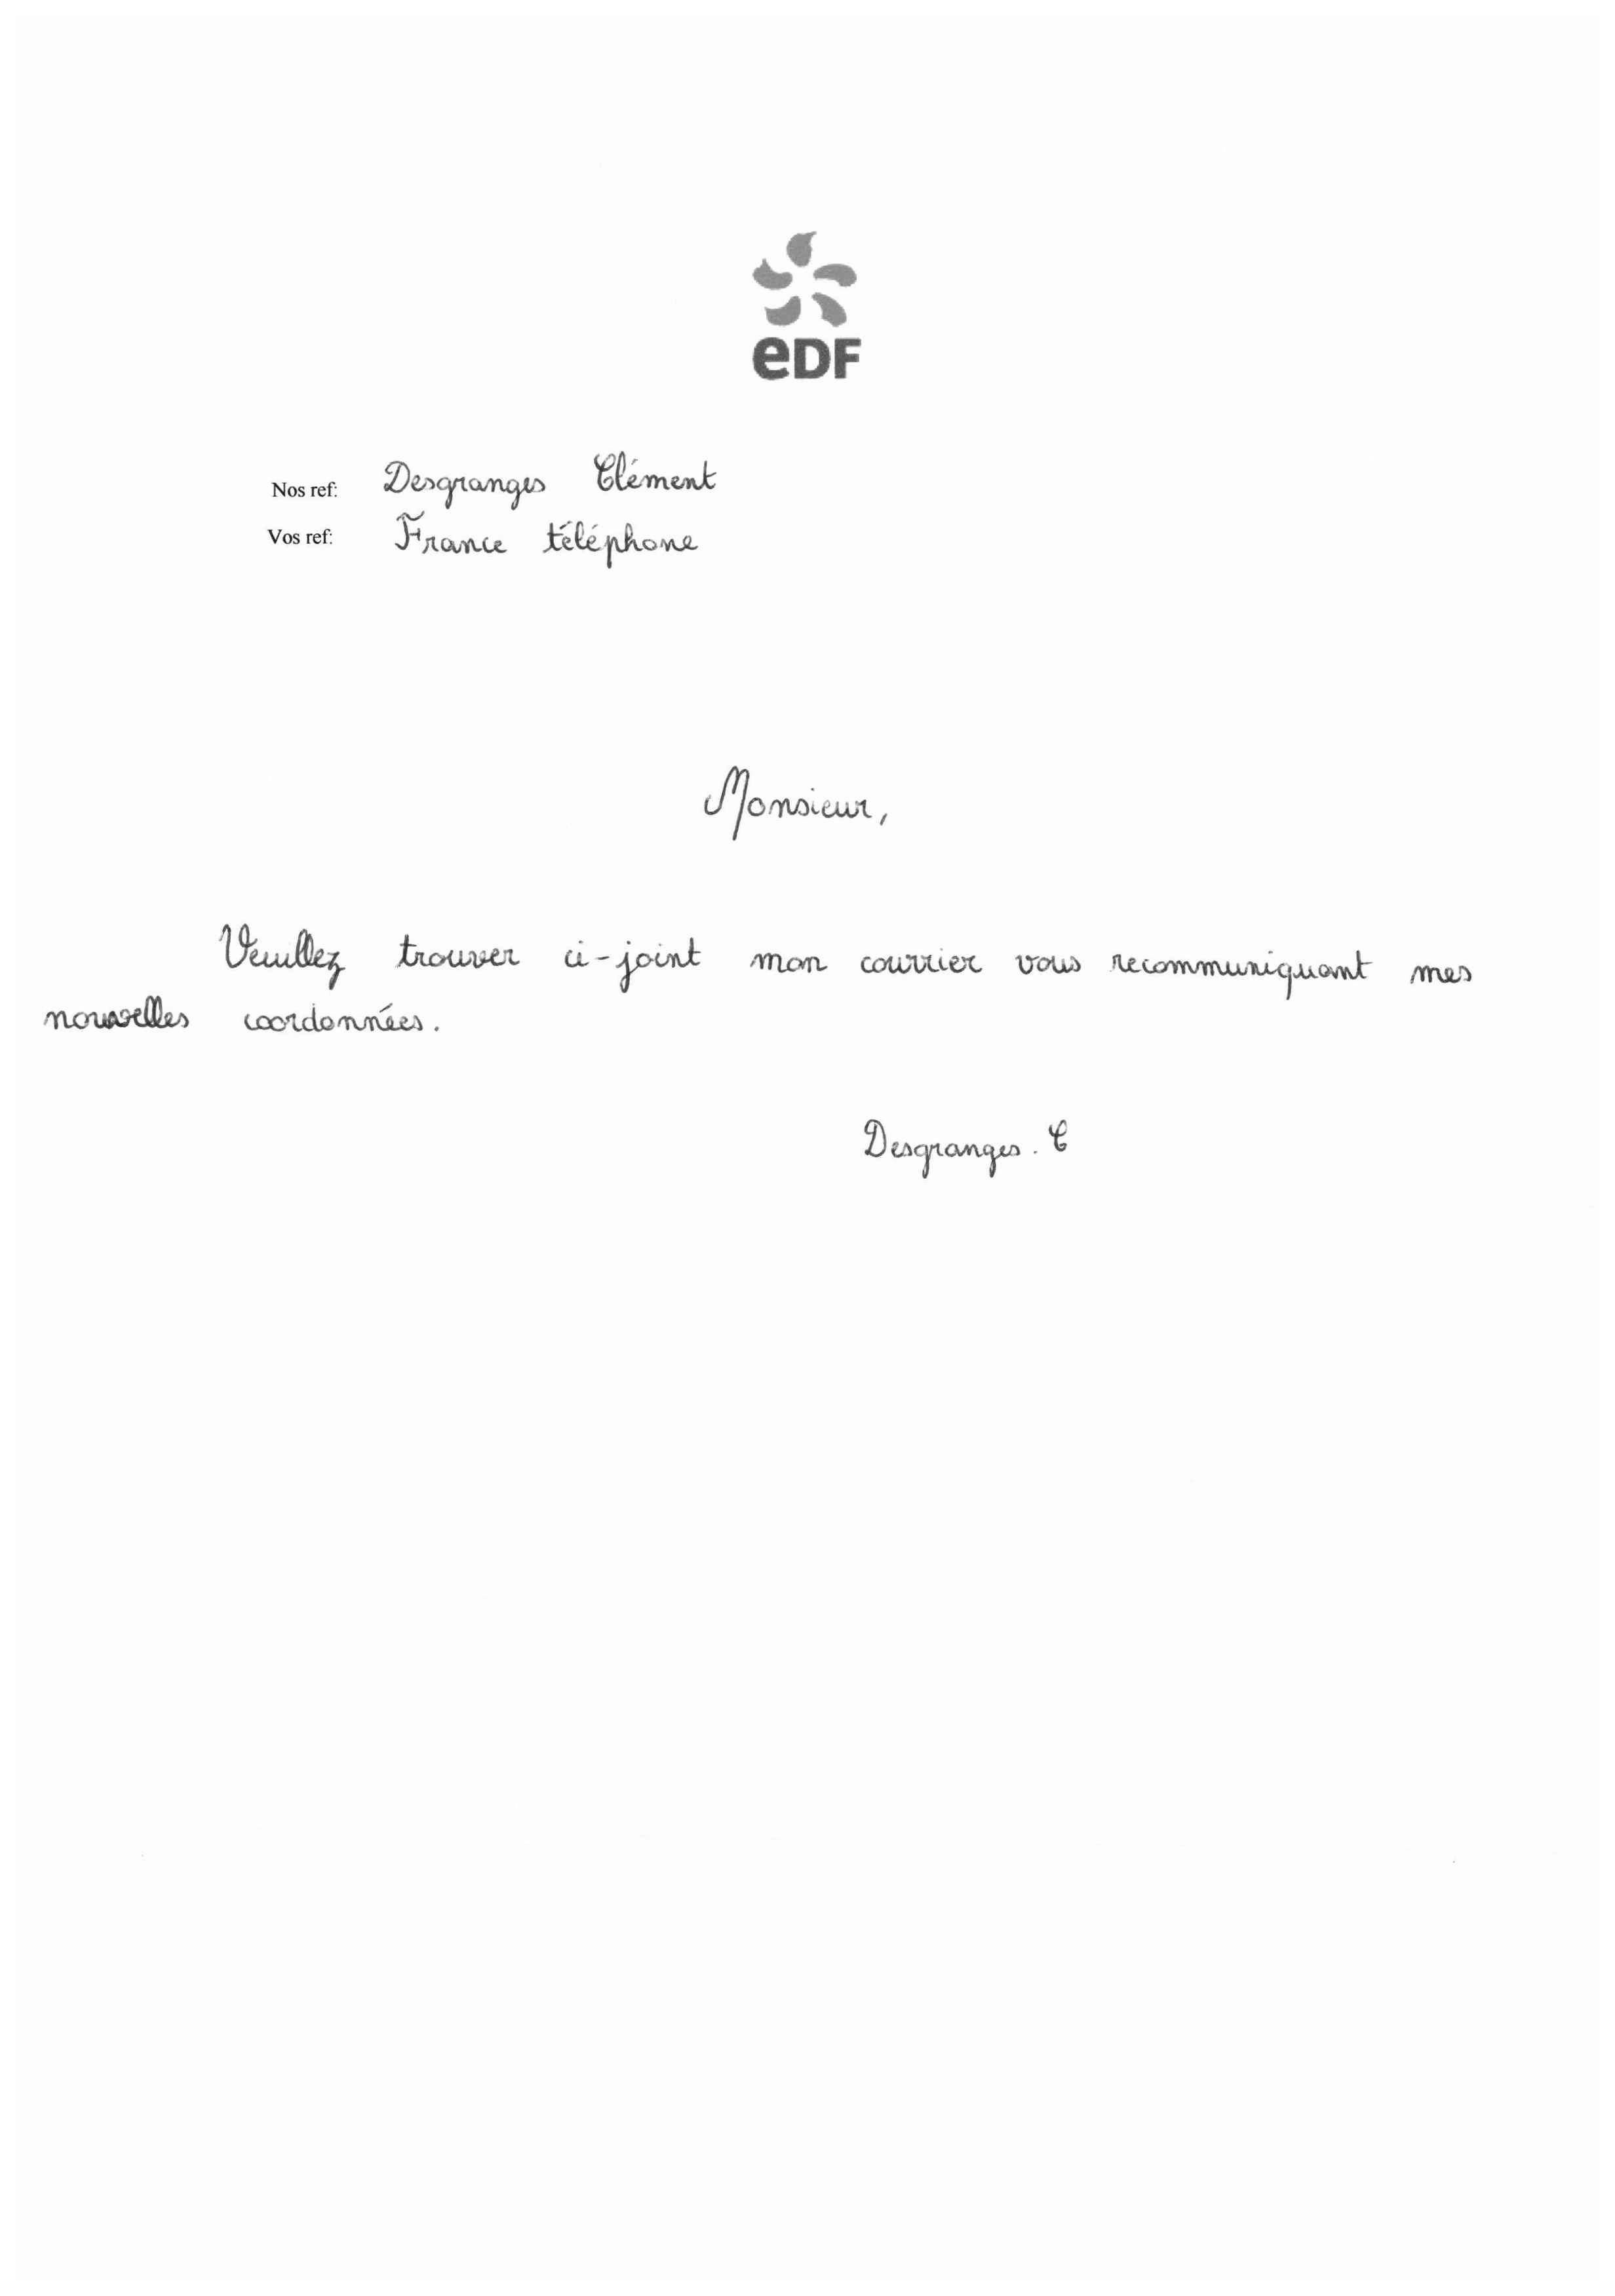 eDF
Nos ref: Desgranges Clément
Vos ref: France téléphone
Monsieur,
Veuillez trouver ci-joint mon courrier vous recommuniquant mes
nouvelles coordonnées.
Desgranges. C